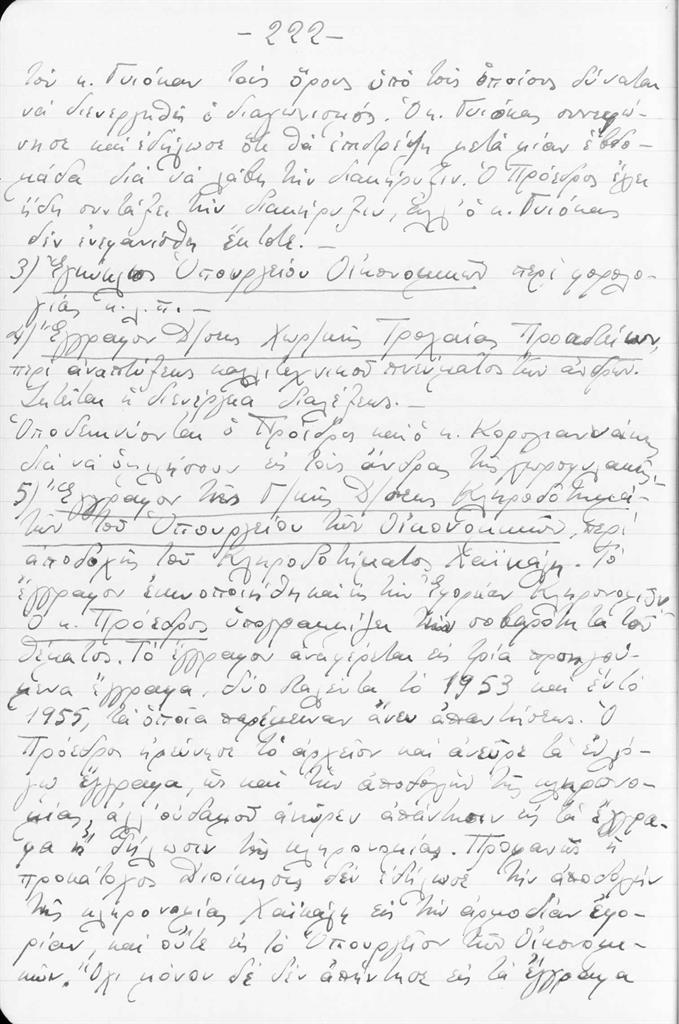 - 222 -
τὸν κ. Γκιόκαν τοὺς ὅρους ὑπὸ τοὺς ὁποίους δύναται
νὰ διενεργηθῇ ὁ διαγωνισμός. Ὁ κ. Γκιόκας συνεφώ-
νησε καὶ ἐδήλωσε ὅτι θὰ ἐπιστρέψῃ μετὰ μίαν ἑβδο-
μάδα διὰ νὰ λάβῃ τὴν διακήρυξιν. Ὁ Πρόεδρος ἔχει
ἤδη συντάξει τὴν διακήρυξιν, ἀλλ' ὁ κ. Γκιόκας
δὲν ἐνεφανίσθη ἔκτοτε. -
3) Ἐγκύκλιος Ὑπουργείου Οἰκονομικῶν περὶ φορολο-
γίας κ.λ.π. -
4) Ἔγγραφον Δ/σεως Χωρ/κῆς Τροχαίας Προαστείων,
περὶ ἀναπτύξεως καλλιτεχνικοῦ πνεύματος τῶν ἀνδρῶν.
Ζητεῖται ἡ διενέργεια διαλέξεως. -
Ὑποδεικνύονται ὁ Πρόεδρος καὶ ὁ κ. Καρογιαννάκης
διὰ νὰ ὁμιλήσουν εἰς τοὺς ἄνδρας τῆς χωροφυλακῆς.
5) Ἔγγραφον τῆς Γ/κῆς Δ/σεως Κληροδοτημά-
των τοῦ Ὑπουργείου τῶν Οἰκονομικῶν, περὶ
ἀποδοχῆς τοῦ Κληροδοτήματος Χαϊκάλη. Τὸ
ἔγγραφον ἐκοινοποιήθη καὶ εἰς τὴν Ἐφορίαν Κληρονομιῶν
Ὁ κ. Πρόεδρος ὑπογραμμίζει τὴν σοβαρότητα τοῦ
θέματος. Τὸ ἔγγραφον ἀναφέρεται εἰς τρία προηγού-
μενα ἔγγραφα, δύο σταλέντα τὸ 1953 καὶ ἓν τὸ
1955, τὰ ὁποῖα παρέμειναν ἄνευ ἀπαντήσεως. Ὁ
Πρόεδρος ἠρεύνησε τὸ ἀρχεῖον καὶ ἀνεῦρε τὰ ἐν λό-
γῳ ἔγγραφα, ὡς καὶ τὴν ἀποδοχὴν τῆς κληρονο-
μίας, ἀλλ' οὐδαμοῦ ἀνεῦρεν ἀπάντησιν εἰς τὰ ἔγγρα-
φα ἢ δήλωσιν τῆς κληρονομίας. Προφανῶς ἡ
προκάτοχος Διοίκησις δὲν ἐδήλωσε τὴν ἀποδοχὴν
τῆς κληρονομίας Χαϊκάλη εἰς τὴν ἁρμοδίαν Ἐφο-
ρίαν, καὶ οὔτε εἰς τὸ Ὑπουργεῖον τῶν Οἰκονομι-
κῶν. Ὄχι μόνον δὲ δὲν ἀπήντησε εἰς τὰ ἔγγραφα